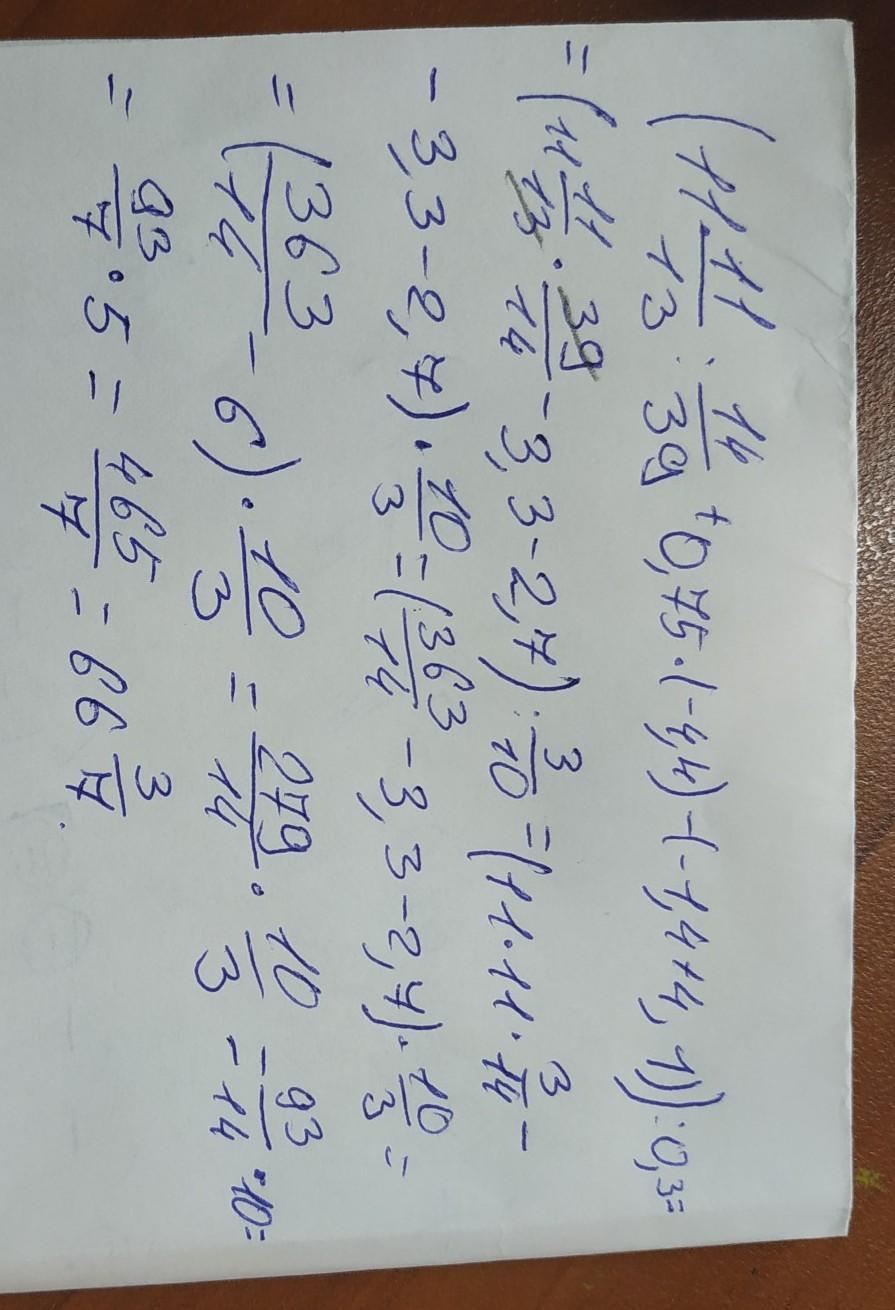 (11 11/13 : 14/39 + 0,75 · (-4,4) - (-1,4 + 4,1)) : 0,3 =
= (11 11/13 · 39/14 - 3,3 - 2,7) : 3/10 = (11 · 11 · 3/14 -
- 3,3 - 2,7) · 10/3 = (363/14 - 3,3 - 2,7) · 10/3 =
= (363/14 - 6) · 10/3 = 279/14 · 10/3 = 93/14 · 10 =
= 93/7 · 5 = 465/7 = 66 3/7.